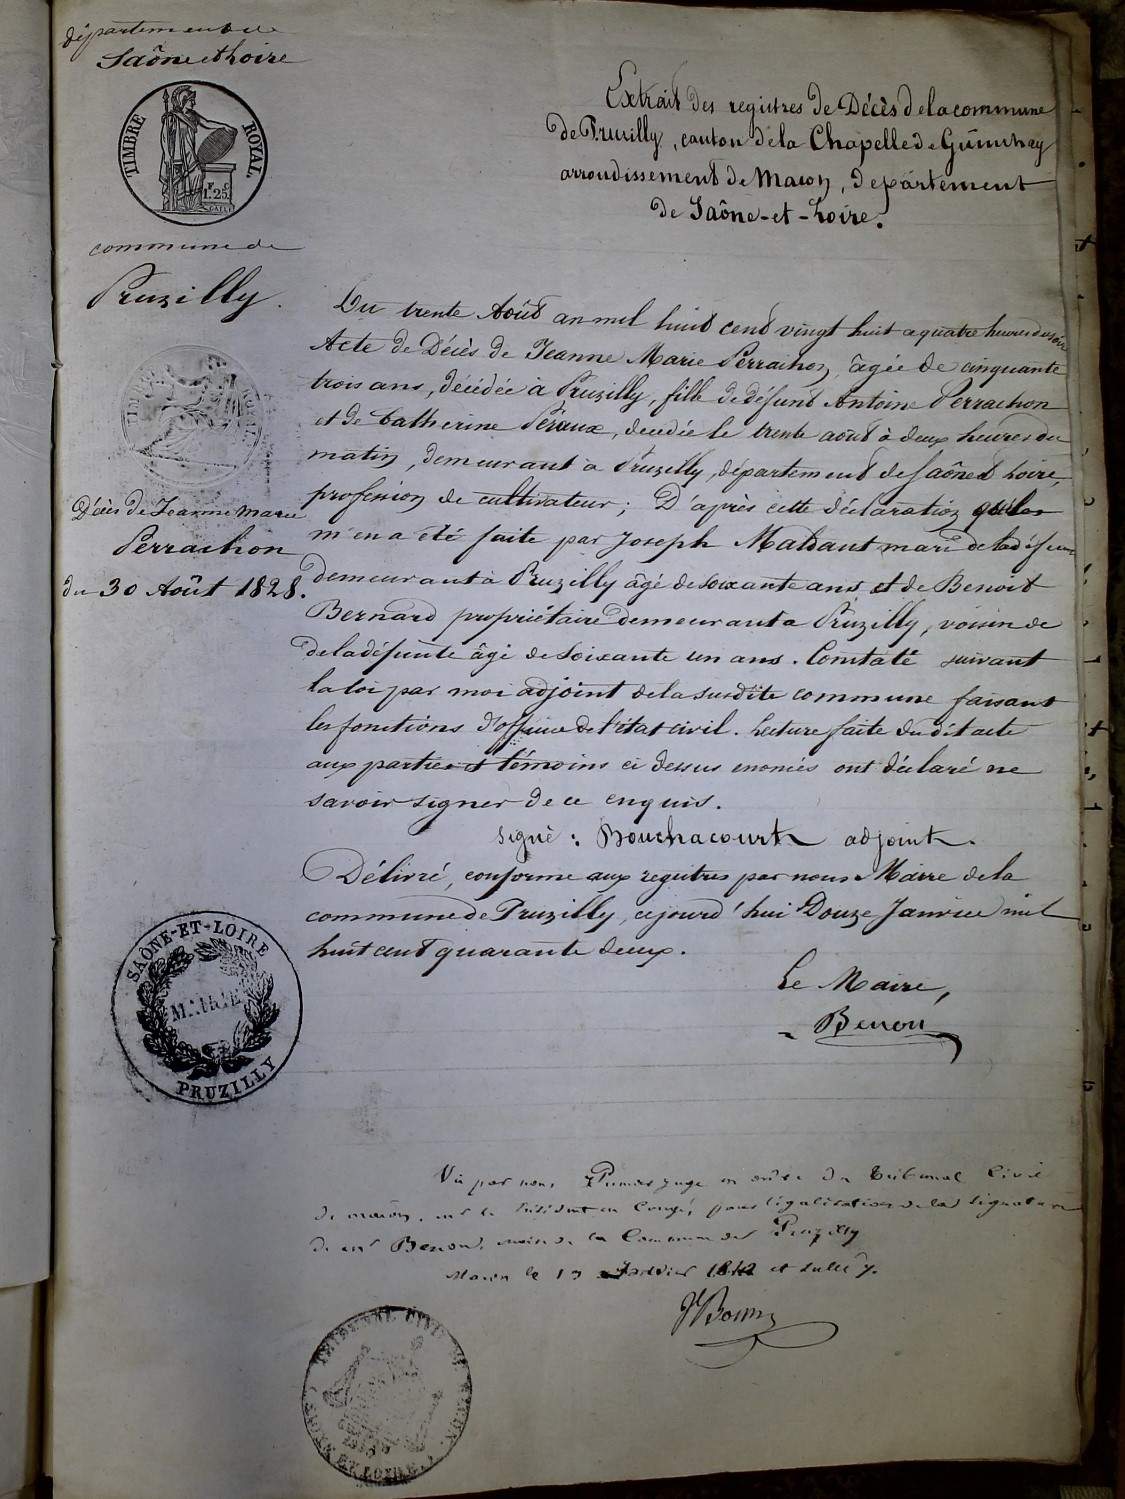 département de
Saône et Loire
TIMBRE ROYAL
1F. 25C
commune de
Pruzilly.
Extrait des registres de Décès de la commune
de Pruzilly, canton de la Chapelle de Guinchay
arrondissement de Macon, département
de Saône-et-Loire.
Du trente Août an mil huit cent vingt huit a quatre heures du soir
Acte de Décès de Jeanne Marie Perrachon, âgée de cinquante
trois ans, décédée à Pruzilly, fille de défunt Antoine Perrachon
et de Catherine, décedée le trente aout à deux heures du
matin, demeurant à Pruzilly, département de Saône et Loire,
profession de cultivateur; D'après cette déclaration
m'en a été faite par Joseph Maldant mari de la défunte
demeurant à Pruzilly âgé de soixante ans et de Benoit
Bernard propriétaire demeurant a Pruzilly, voisin de
de la défunte âgé de soixante un ans. Constaté suivant
la loi par moi adjoint de la susdite commune faisant
les fonctions d'officier de l'état civil. Lecture faite du dit acte
aux parties et témoins ci dessus ont déclaré ne
savoir signer de ce enquis.
signé: Bouchacourt adjoint.
Délivré, conforme aux registres par nous Maire de la
commune de Pruzilly, cejourd'hui Douze Janvier mil
huit cent quarante deux.
Le Maire,
Benon
Décès de Jeanne Marie
Perrachon
du 30 Août 1828.
SAÔNE-ET-LOIRE
MAIRIE
PRUZILLY
Vu par nous Premier juge en ordre du Tribunal Civil
de macon, le Président en Congé, pour légalisation de la signature
de Mr Benon, maire de la Commune de Pruzilly
Macon le 13 Janvier 1842
TRIBUNAL CIVIL DE MACON
SAONE ET LOIRE